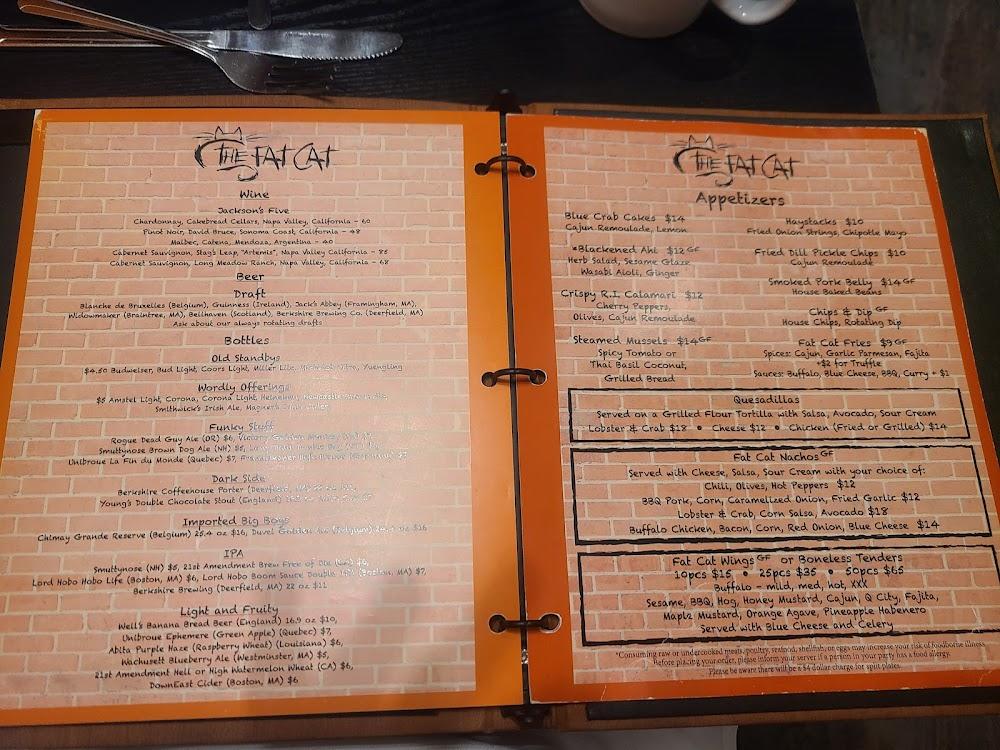 THE FAT CAT
Wine
Jackson's Five
Chardonnay, Cakebread Cellars, Napa Valley, California - 60
Pinot Noir, David Bruce, Sonoma Coast, California - 48
Malbec, Catena, Mendoza, Argentina - 40
Cabernet Sauvignon, Stag's Leap, "Artemis", Napa Valley California - 85
Cabernet Sauvignon, Long Meadow Ranch, Napa Valley, California - 68
Beer
Draft
Blanche de Bruxelles (Belgium), Guinness (Ireland), Jack's Abbey (Framingham, MA),
Widowmaker (Braintree, MA), Bellhaven (Scotland), Berkshire Brewing Co. (Deerfield, MA)
Ask about our always rotating drafts
Bottles
Old Standbys
$4.50 Budweiser, Bud Light, Coors Light, Miller Lite, Yuengling
Wordly Offerings
$5 Amstel Light, Corona, Corona Light, Heineken, Newcastle
Smithwick's Irish Ale, Magner's
Funky Stuff
Rogue Dead Guy Ale (OR) $6, Victory Golden Monkey
Smuttynose Brown Dog Ale (NH) $5,
Unibroue La Fin du Monde (Quebec) $7,
Dark Side
Berkshire Coffeehouse Porter (Deerfield, MA)
Young's Double Chocolate Stout (England)
Imported Big Boys
Chimay Grande Reserve (Belgium) 25.4 oz $16, Duvel (Belgium) oz $16
IPA
Smuttynose (NH) $5, 21st Amendment Brew Free or Die
Lord Hobo Hobo Life (Boston, MA) $6, Lord Hobo Boom Sauce Double IPA (Boston, MA) $7,
Berkshire Brewing (Deerfield, MA) 22 oz $11
Light and Fruity
Well's Banana Bread Beer (England) 16.9 oz $10,
Unibroue Ephemere (Green Apple) (Quebec) $7,
Abita Purple Haze (Raspberry Wheat) (Louisiana) $6,
Wachusett Blueberry Ale (Westminster, MA) $5,
21st Amendment Hell or High Watermelon Wheat (CA) $6,
DownEast Cider (Boston, MA) $6
THE FAT CAT
Appetizers
Blue Crab Cakes $14
Cajun Remoulade, Lemon
*Blackened Ahi $12 GF
Herb Salad, Sesame Glaze
Wasabi Aioli, Ginger
Crispy R.I. Calamari $12
Cherry Peppers,
Olives, Cajun Remoulade
Steamed Mussels $14 GF
Spicy Tomato or
Thai Basil Coconut,
Grilled Bread
Haystacks $10
Fried Onion Strings, Chipotle Mayo
Fried Dill Pickle Chips $10
Cajun Remoulade
Smoked Pork Belly $14 GF
House Baked Beans
Chips & Dip GF
House Chips, Rotating Dip
Fat Cat Fries $9 GF
Spices: Cajun, Garlic Parmesan, Fajita
+$2 for Truffle
Sauces: Buffalo, Blue Cheese, BBQ, Curry + $1
Quesadillas
Served on a Grilled Flour Tortilla with Salsa, Avocado, Sour Cream
Lobster & Crab $18 • Cheese $12 • Chicken (Fried or Grilled) $14
Fat Cat Nachos GF
Served with Cheese, Salsa, Sour Cream with your choice of:
Chili, Olives, Hot Peppers $12
BBQ Pork, Corn, Caramelized Onion, Fried Garlic $12
Lobster & Crab, Corn Salsa, Avocado $18
Buffalo Chicken, Bacon, Corn, Red Onion, Blue Cheese $14
Fat Cat Wings GF or Boneless Tenders
10pcs $15 • 25pcs $35 • 50pcs $65
Buffalo - mild, med, hot, XXX
Sesame, BBQ, Hog, Honey Mustard, Cajun, Q City, Fajita,
Maple Mustard, Orange Agave, Pineapple Habenero
Served with Blue Cheese and Celery
*Consuming raw or undercooked meats, poultry, seafood, shellfish, or eggs may increase your risk of foodborne illness
Before placing your order, please inform your server if a person in your party has a food allergy.
Please be aware there will be a $4 dollar charge for split plates.